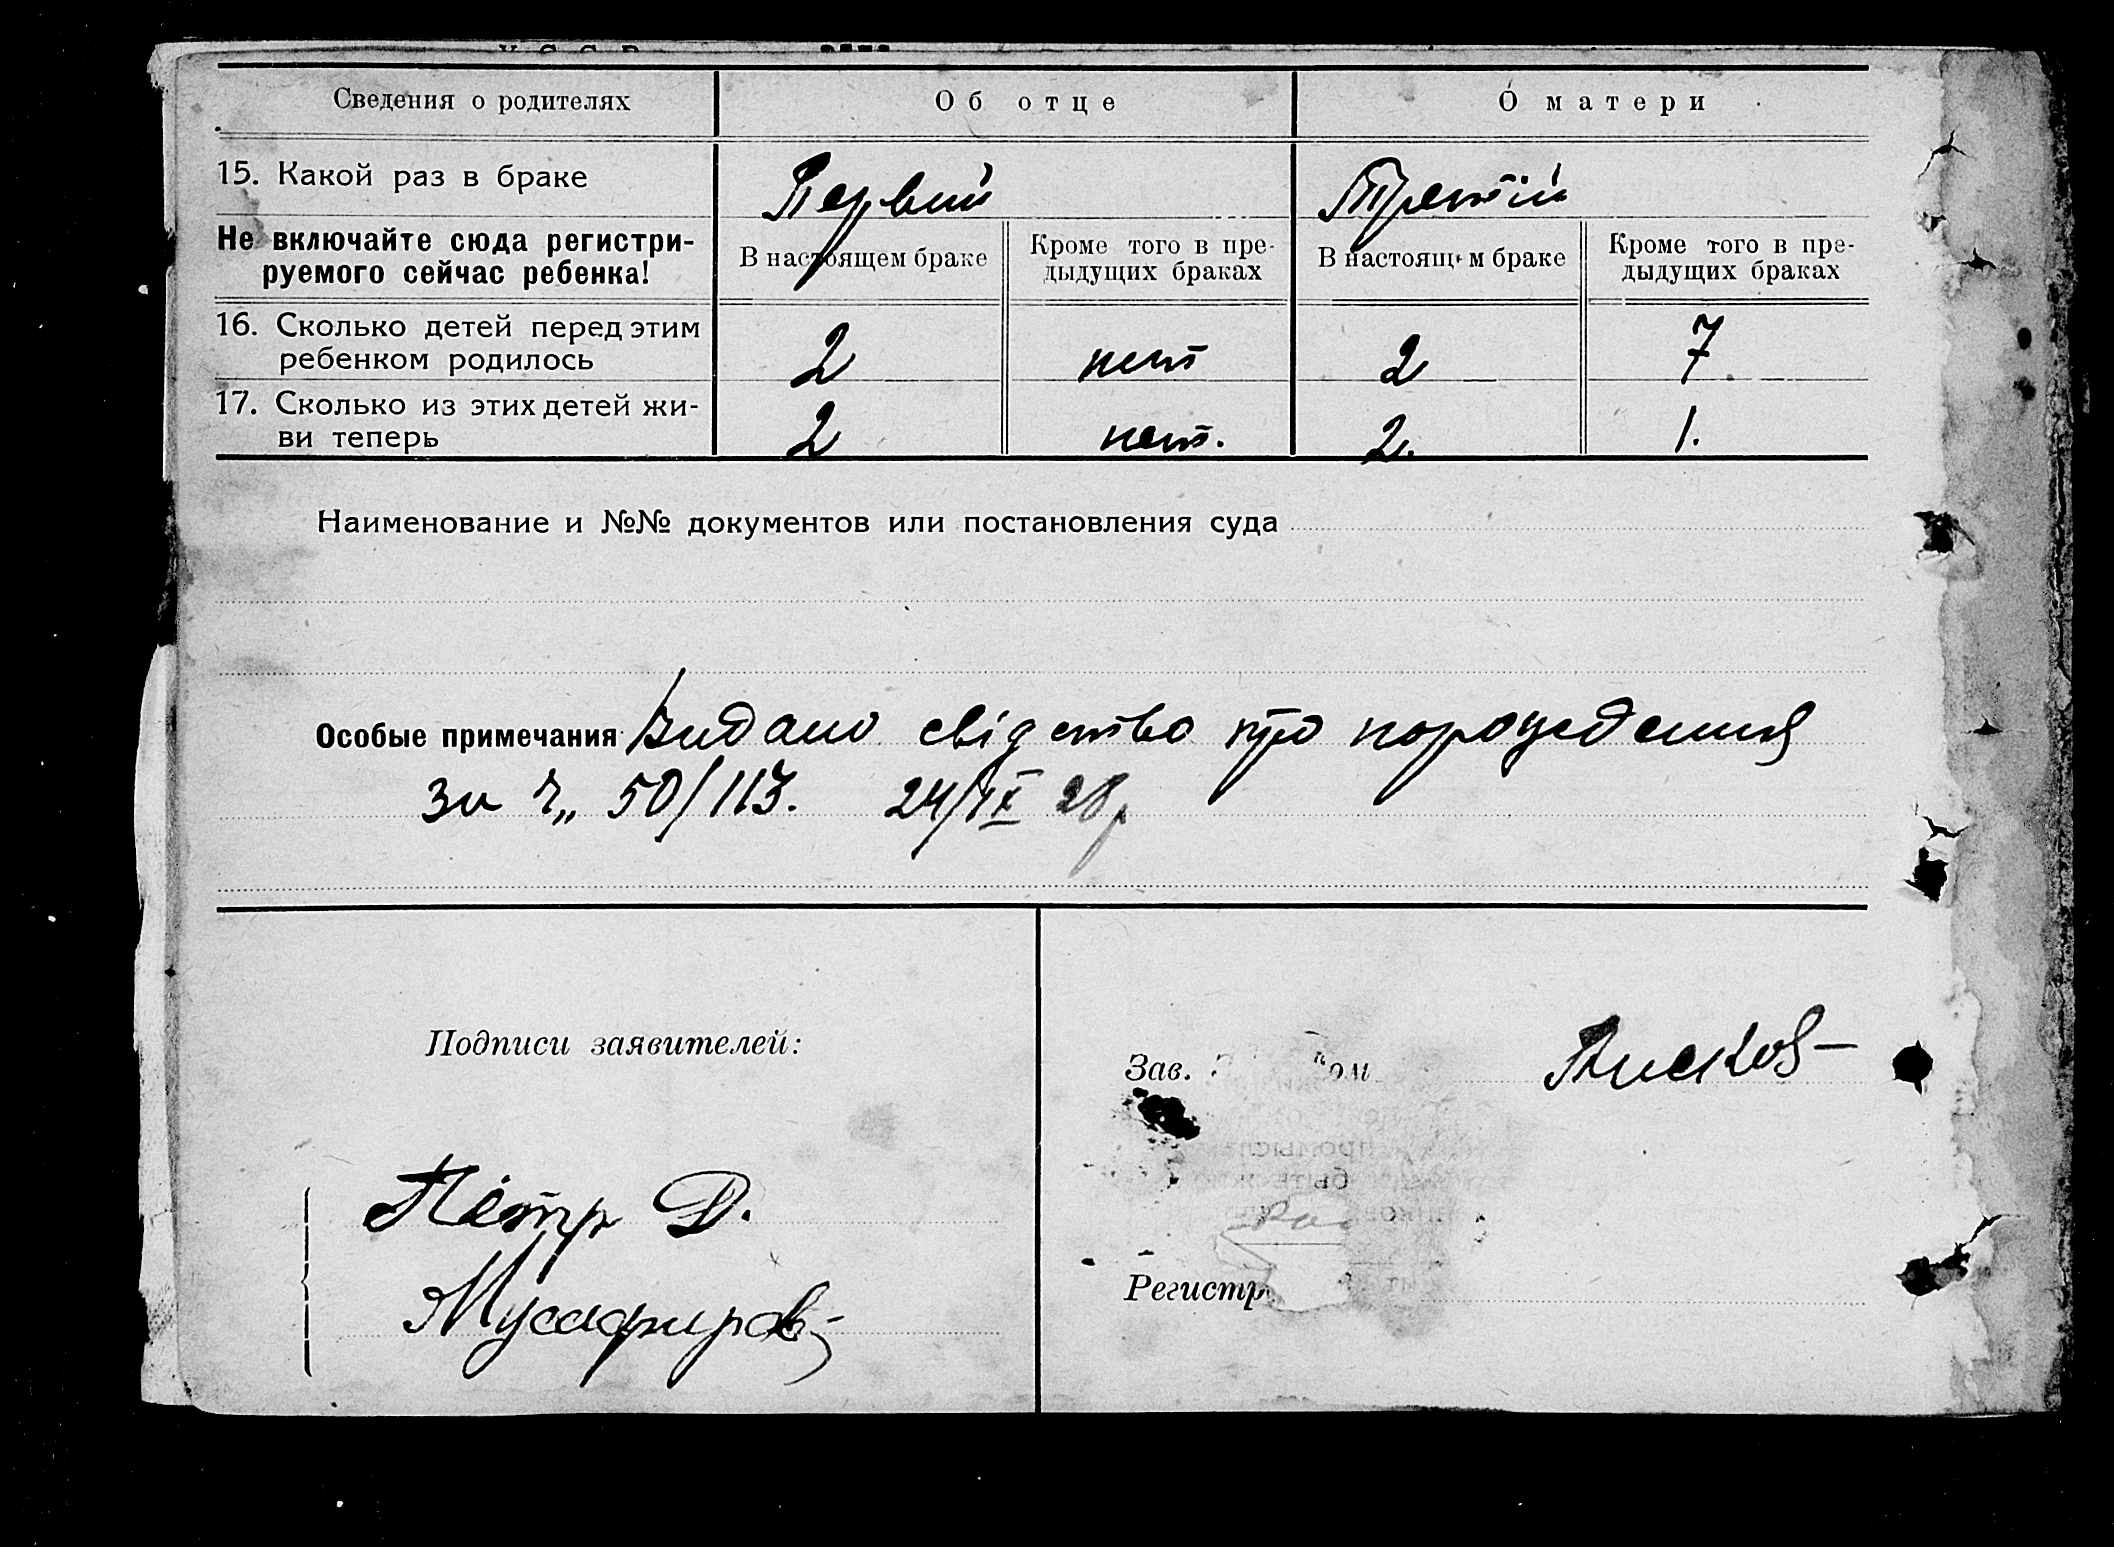 Сведения о родителях Об отце О матери
15. Какой раз в браке Первий Третій
Не включайте сюда регистри-
руемого сейчас ребенка!
В настоящем браке Кроме того в пре-
дыдущих браках В настоящем браке Кроме того в пре-
дыдущих браках
16. Сколько детей перед этим
ребенком родилось 2 нет 2 7
17. Сколько из этих детей жи-
ви теперь 2 нет. 2. 1.
Наименование и №№ документов или постановления суда
Особые примечания Видано свідетство про порождения
за ч„ 50/113. 24/IX 28р
Подписи заявителей:
Зав. Писков
Пётр Д.
Мусафиров
Регистр